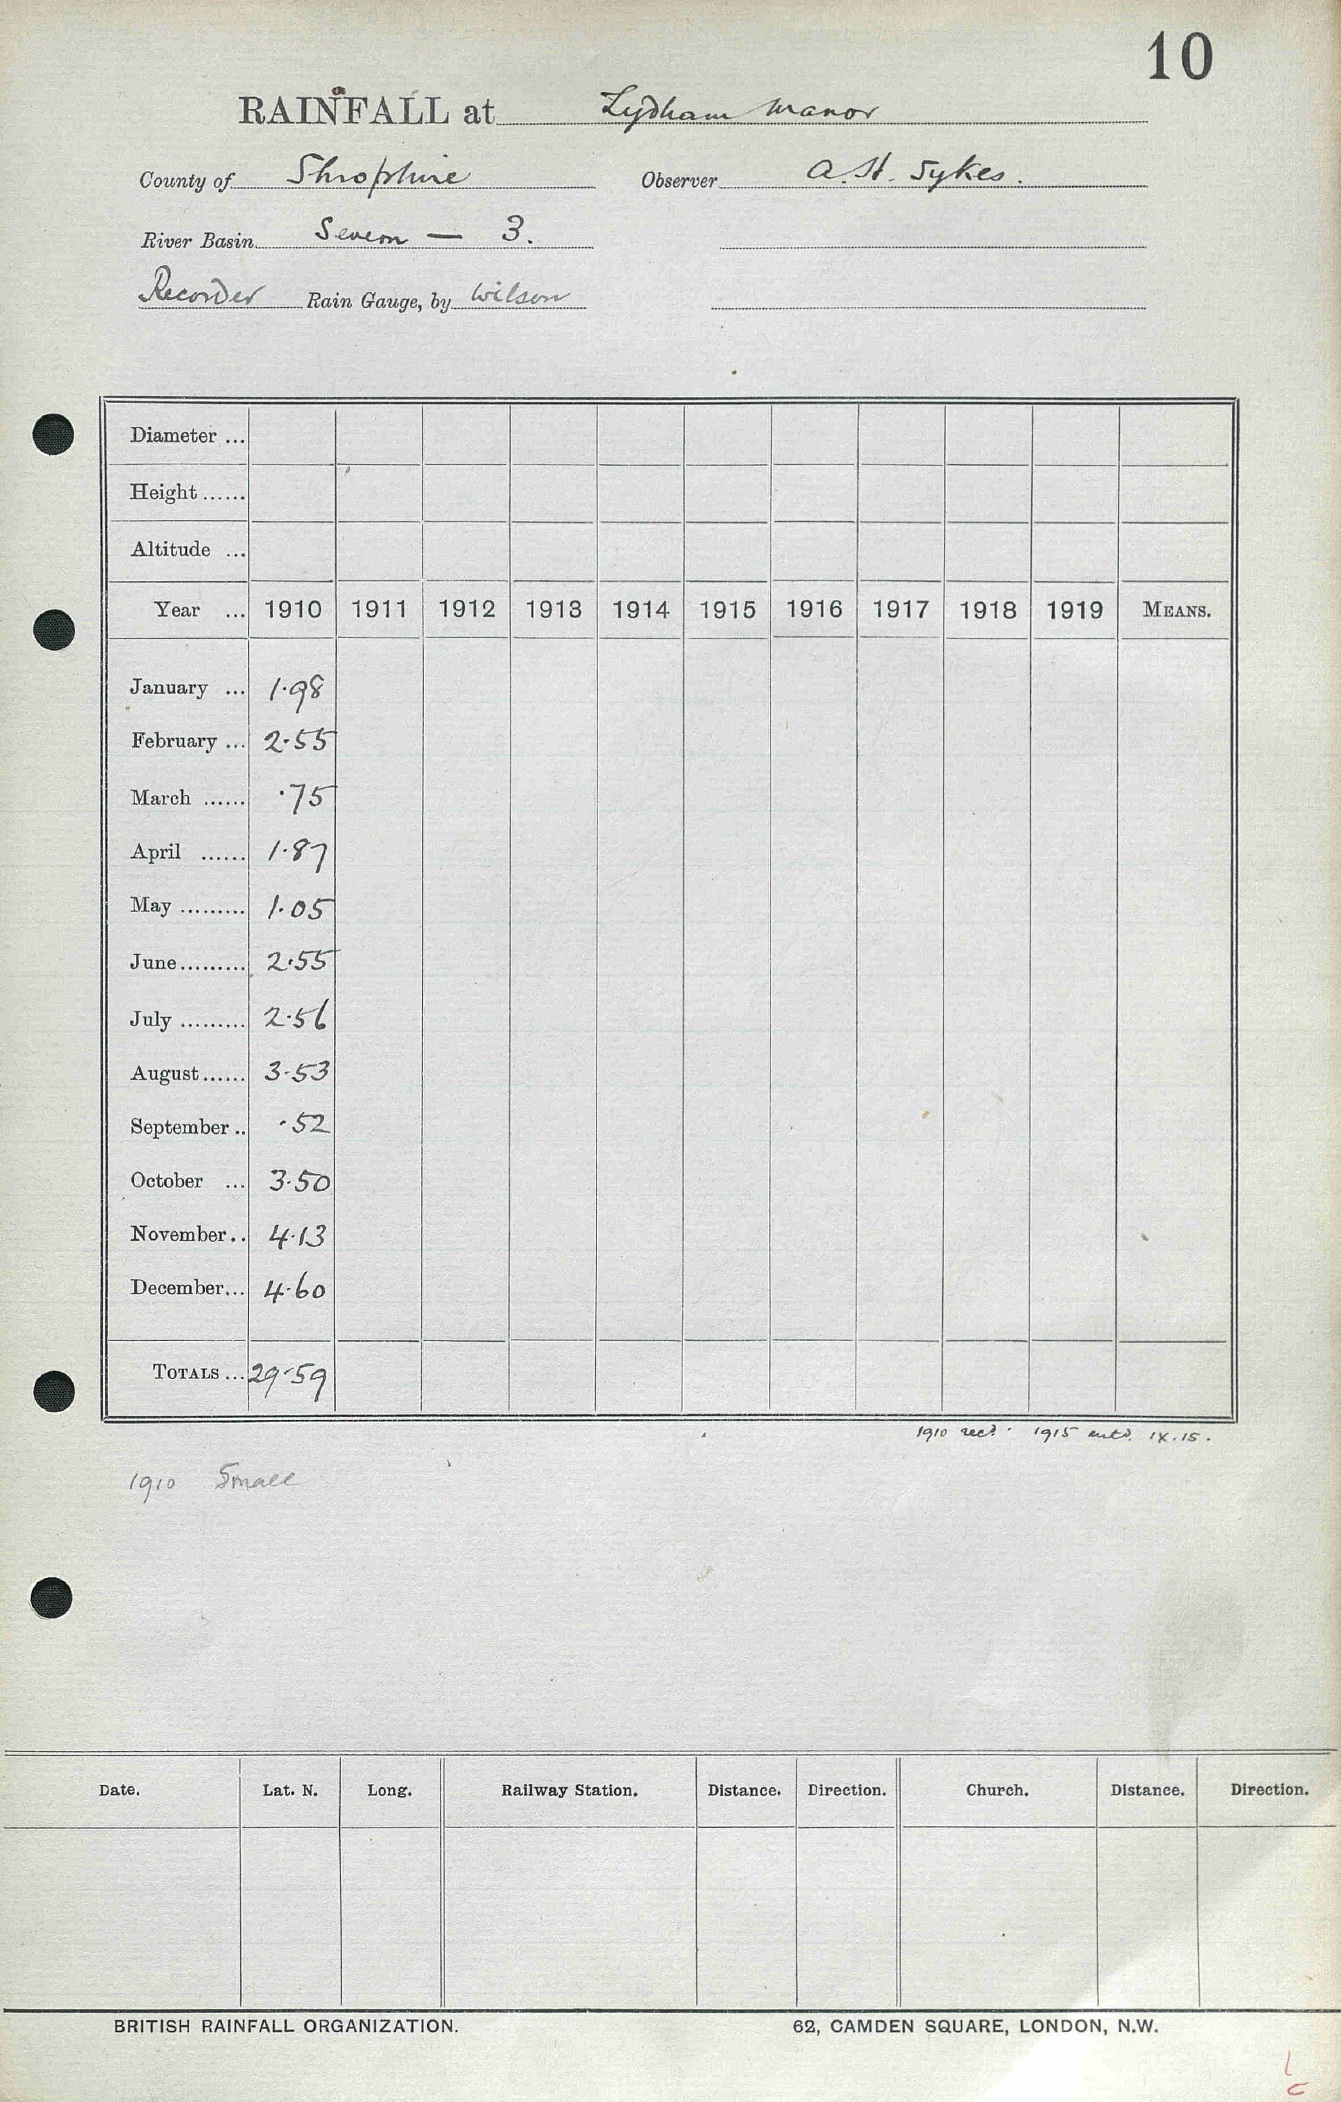 10
RAINFALL at Lydham Manor
County of Shropshire Observer A. H. Sykes.
River Basin Severn — 3.
Recorder Rain Gauge, by Wilson
Diameter ...
Height ......
Altitude ...
Year ... 1910 1911 1912 1913 1914 1915 1916 1917 1918 1919 MEANS.
January ... 1·98
February ... 2·55
March ...... ·75
April ...... 1·87
May ......... 1·05
June ......... 2·55
July ......... 2·56
August ...... 3·53
September .. ·52
October ... 3·50
November .. 4·13
December ... 4·60
TOTALS ... 29·59
1910 recd. 1915 entd. IX.15.
1910 Small
Date. Lat. N. Long. Railway Station. Distance. Direction. Church. Distance. Direction.
BRITISH RAINFALL ORGANIZATION. 62, CAMDEN SQUARE, LONDON, N.W.